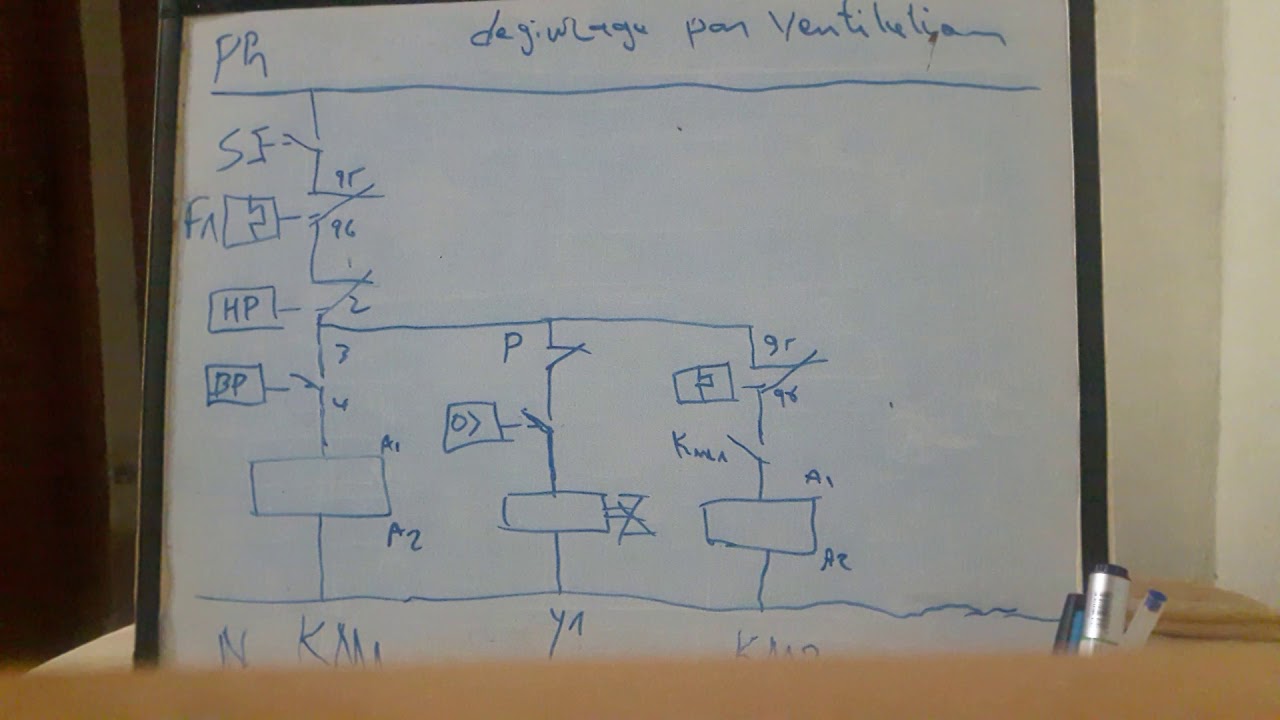 degivrage par ventilation
Ph
S
95
F1
96
1
HP
2
3
P
95
BP
4
96
θ>
KM1
A1
A1
A2
A2
N KM1 Y1 KM2